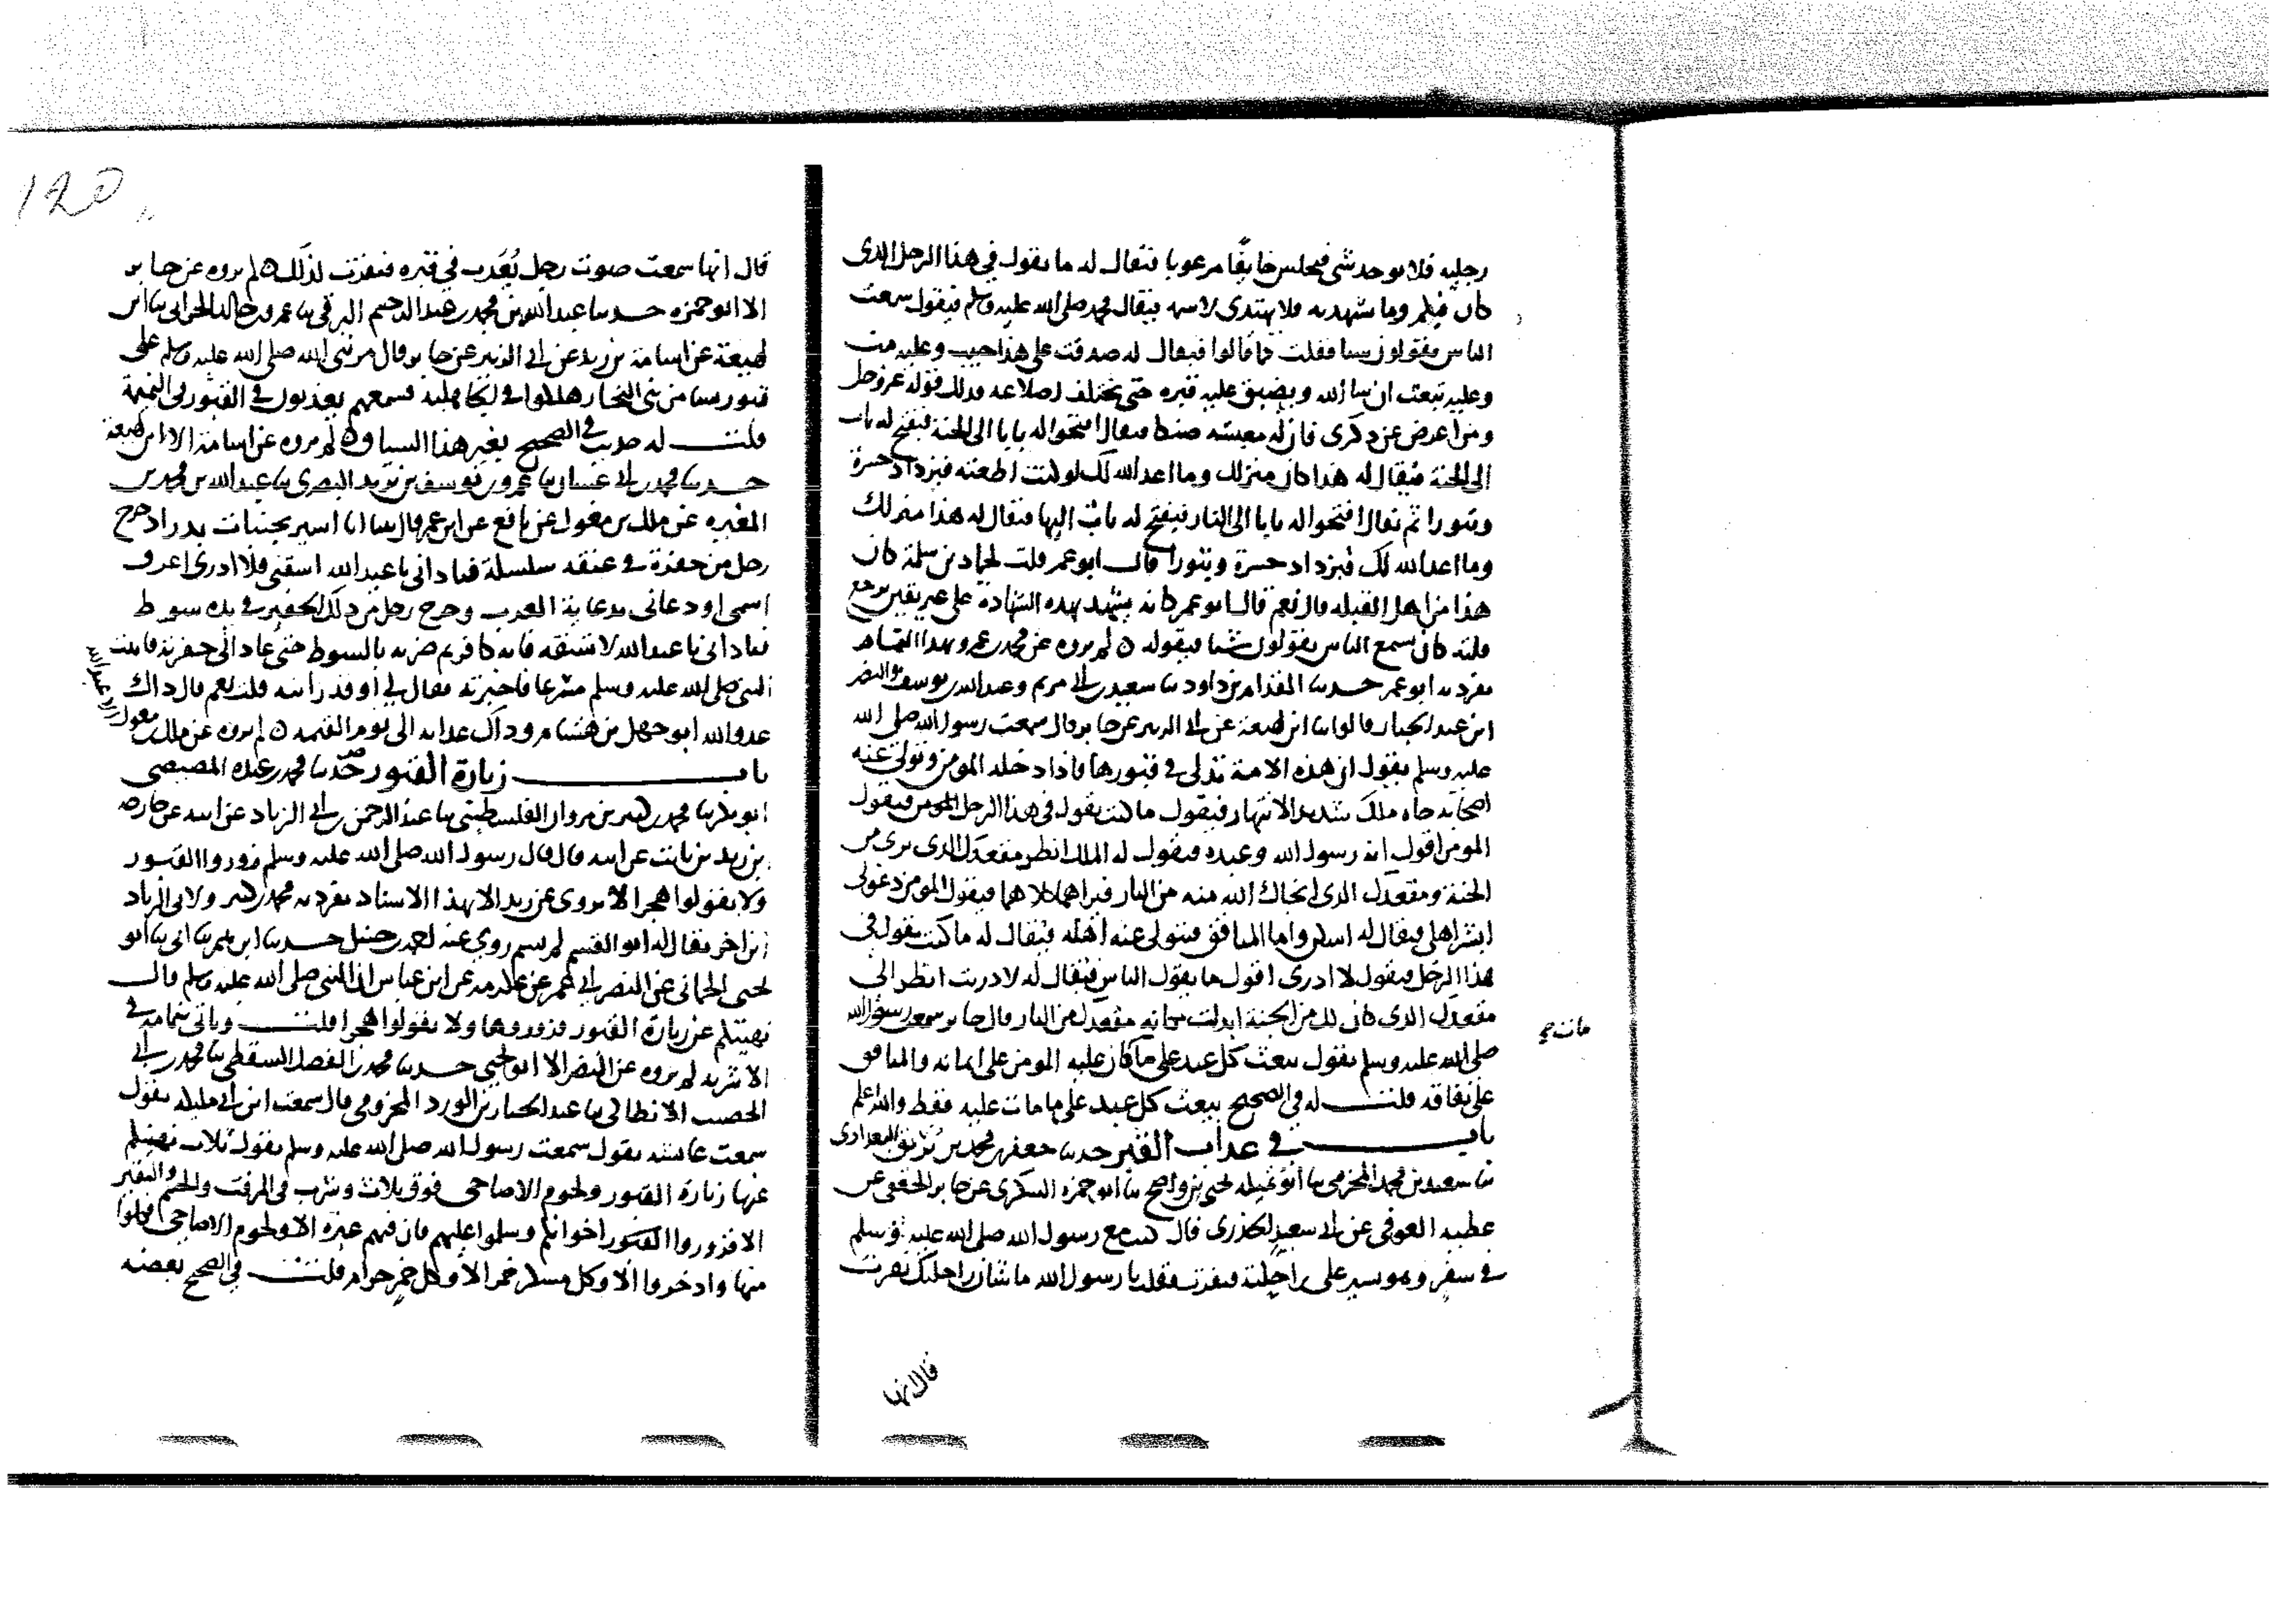 رجليه فلا يوجد شي فيجلس خايفا مرعوبا فيقال له ما يقول في هذا الرجل الذي
كان فيكم وما شهد به فلا يهتدي لاسمه فيقال محمد صلى الله عليه وسلم فيقول سمعت
الناس يقولون شيئا فقلت كما قالوا فيقال له صدقت على هذا حييت وعليه مت
وعليه تبعث ان شا الله ويضيق عليه قبره حتى يختلف اضلاعه وذلك قوله عز وجل
ومن اعرض عن ذكري فان له معيشه ضنكا فيقال افتحوا له بابا الى الجنة فيفتح له باب
الى الجنة فيقال له هذا كان منزلك وما اعد الله لك لو كنت اطعته فيزداد حسرة
وثبورا ثم يقال افتحوا له بابا الى النار فيفتح له باب اليها فيقال له هذا منزلك
وما اعد الله لك فيزداد حسرة وثبورا قال ابو عمر قلت لحماد بن سلمة كان
هذا من اهل القبله قال نعم قال ابو عمر كانه يشهد بهذه الشهادة على غير يقين يرجع
قلبه كان يسمع الناس يقولون شيا فيقوله ن لم يروه عن محمد بن عمرو بهذا التمام
تفرد به ابو عمر حدثنا المقدام بن داود ثنا سعيد بن ابي مريم وعبد الله بن يوسف والنضر
ابن عبد الجبار قالوا ثنا ابن لهيعة عن ابي الزبير عن جابر قال سمعت رسول الله صلى الله
عليه وسلم يقول ان هذه الامة تبتلى في قبورها فاذا دخله المومن وتولى عنه
اصحابه جاه ملك شديد الانتهار فيقول ما كنت تقول في هذا الرجل المومن فيقول
المومن اقول انه رسول الله وعبده فيقول له الملك انظر مقعدك الذي ترى من
الجنة ومقعدك الذي انجاك الله منه من النار فيراهما كلاهما فيقول المومن دعوني
ابشر اهلي فيقال له اسكن واما المنافق فيتولى عنه اهله فيقال له ما كنت تقول في
هذا الرجل فيقول لا ادري اقول ما يقول الناس فيقال له لا دريت انظر الى
مقعدك الذي كان لك من الجنة ابدلت مكانه مقعدك من النار قال جابر سمعت رسول الله
صلى الله عليه وسلم يقول يبعث كل عبد على ما كان عليه المومن على ايمانه والمنافق
على نفاقه قلت له في الصحيح يبعث كل عبد على ما مات عليه فقط والله اعلم
باب في عذاب القبر حدثنا جعفر بن محمد بن البغدادي
ثنا سعيد بن محمد الجرمي ثنا ابو تميله يحيى بن واضح ثنا ابو حمزه السكري عن جابر الجعفي عن
عطيه العوفي عن ابي سعيد الخدري قال كنت مع رسول الله صلى الله عليه وسلم
في سفر وهو يسير على راحلته فنفرت فقلت يا رسول الله ما شان راحلتك نفرت
قال انها
قال انها سمعت صوت رجل يعذب في قبره فنفرت لذلك ن لم يروه عن جابر
الا ابو حمزه حدثنا عبد الله بن محمد بن عبد الرحيم البرقي ثنا عمرو بن خالد الحراني ثنا ابن
لهيعة عن اسامة بن زيد عن ابي الزبير عن جابر قال مر نبي الله صلى الله عليه وسلم على
قبور نسا من بني النجار هلكوا في الجاهلية فسمعهم يعذبون في القبور في النميمة
قلت له حديث في الصحيح بغير هذا السياق ن لم يروه عن اسامة الا ابن لهيعة
حدثنا محمد بن ابي غسان ثنا عمرو بن يوسف بن يزيد البصري ثنا عبد الله بن محمد بن
المغيره عن ملك بن مغول عن نافع عن ابن عمر قال بينا انا اسير بجنبات بدر اذ خرج
رجل من حفرة في عنقه سلسلة فناداني يا عبد الله اسقني فلا ادري اعرف
اسمي او دعاني بدعاية العرب وخرج رجل من ذلك الحفير في يده سوط
فناداني يا عبد الله لا تسقه فانه كافر ثم ضربه بالسوط حتى عاد الى حفرته فاتيت
النبي صلى الله عليه وسلم مسرعا فاخبرته فقال لي او قد رايته قلت نعم قال ذاك
عدو الله ابو جهل بن هشام وذاك عذابه الى يوم القيمه ن لم يروه عن ملك بن مغول الا عبد الله
باب زيارة القبور حدثنا محمد بن عبده المصيصي
ابو بكر ثنا محمد بن كثير بن مروان الفلسطيني ثنا عبد الرحمن بن ابي الزناد عن ابيه عن خارجه
بن زيد بن ثابت عن ابيه قال قال رسول الله صلى الله عليه وسلم زوروا القبور
ولا تقولوا هجرا لا يروى عن زيد الا بهذا الاسناد تفرد به محمد بن كثير ولابي الزناد
ابن اخر يقال له ابو القسم لم يسم روى عنه احمد بن حنبل حدثنا ابرهيم ثنا ابي ثنا ابو
يحيى الحماني عن النضر ابي عمر عن عكرمه عن ابن عباس ان النبي صلى الله عليه وسلم قال
نهيتكم عن زيارة القبور فزوروها ولا تقولوا هجرا قلت وياتي بتمامه في
الاشربه لم يروه عن النضر الا ابو يحيى حدثنا محمد بن الفضل السقطي ثنا محمد بن ابي
الخصيب الانطاكي ثنا عبد الجبار بن الورد المخزومي قال سمعت ابن ابي مليكه يقول
سمعت عايشه تقول سمعت رسول الله صلى الله عليه وسلم يقول ثلاث نهيتكم
عنها زيارة القبور ولحوم الاضاحي فوق ثلاث وشرب في المزفت والحنتم والنقير
الا فزوروا القبور اخوانكم وسلموا عليهم فان فيهم عبرة الا ولحوم الاضاحي فكلوا
منها وادخروا الا وكل مسكر خمر الا وكل خمر حرام قلت في الصحيح بعضه